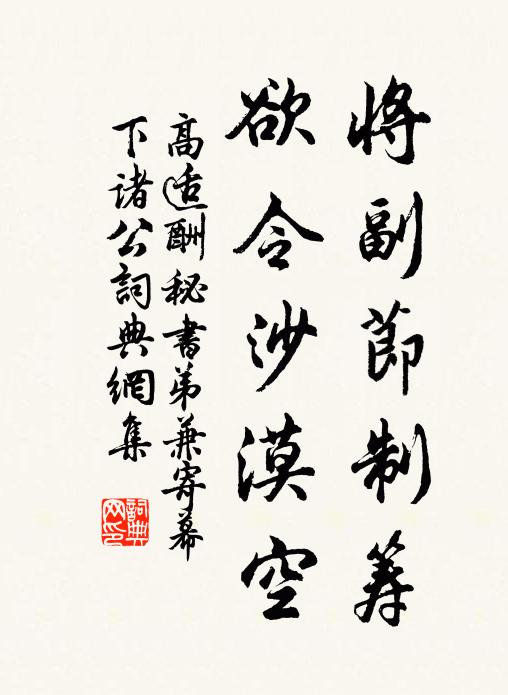 將副節制籌
欲令沙漠空
高适酬秘書弟兼寄幕
下诸公詞典網集
詞典网印